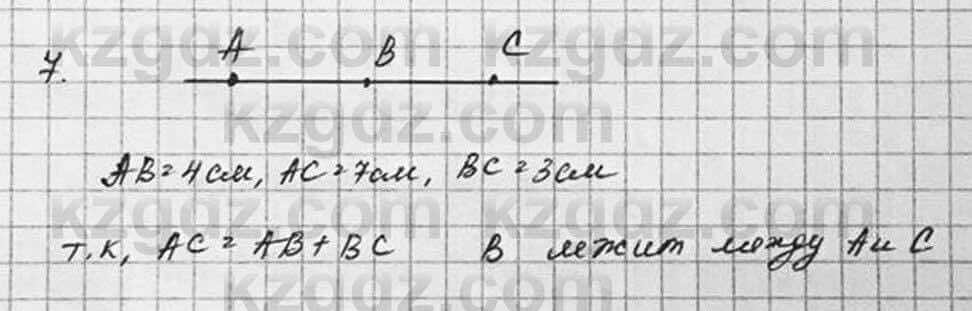 kzgdz.com kzgdz.com
7. A B C
kzgdz.com
AB = 4 см, AC = 7 см, BC = 3 см
kzgdz.com kzgdz.com
т.к, AC = AB + BC B лежит между A и C
kzgdz.com